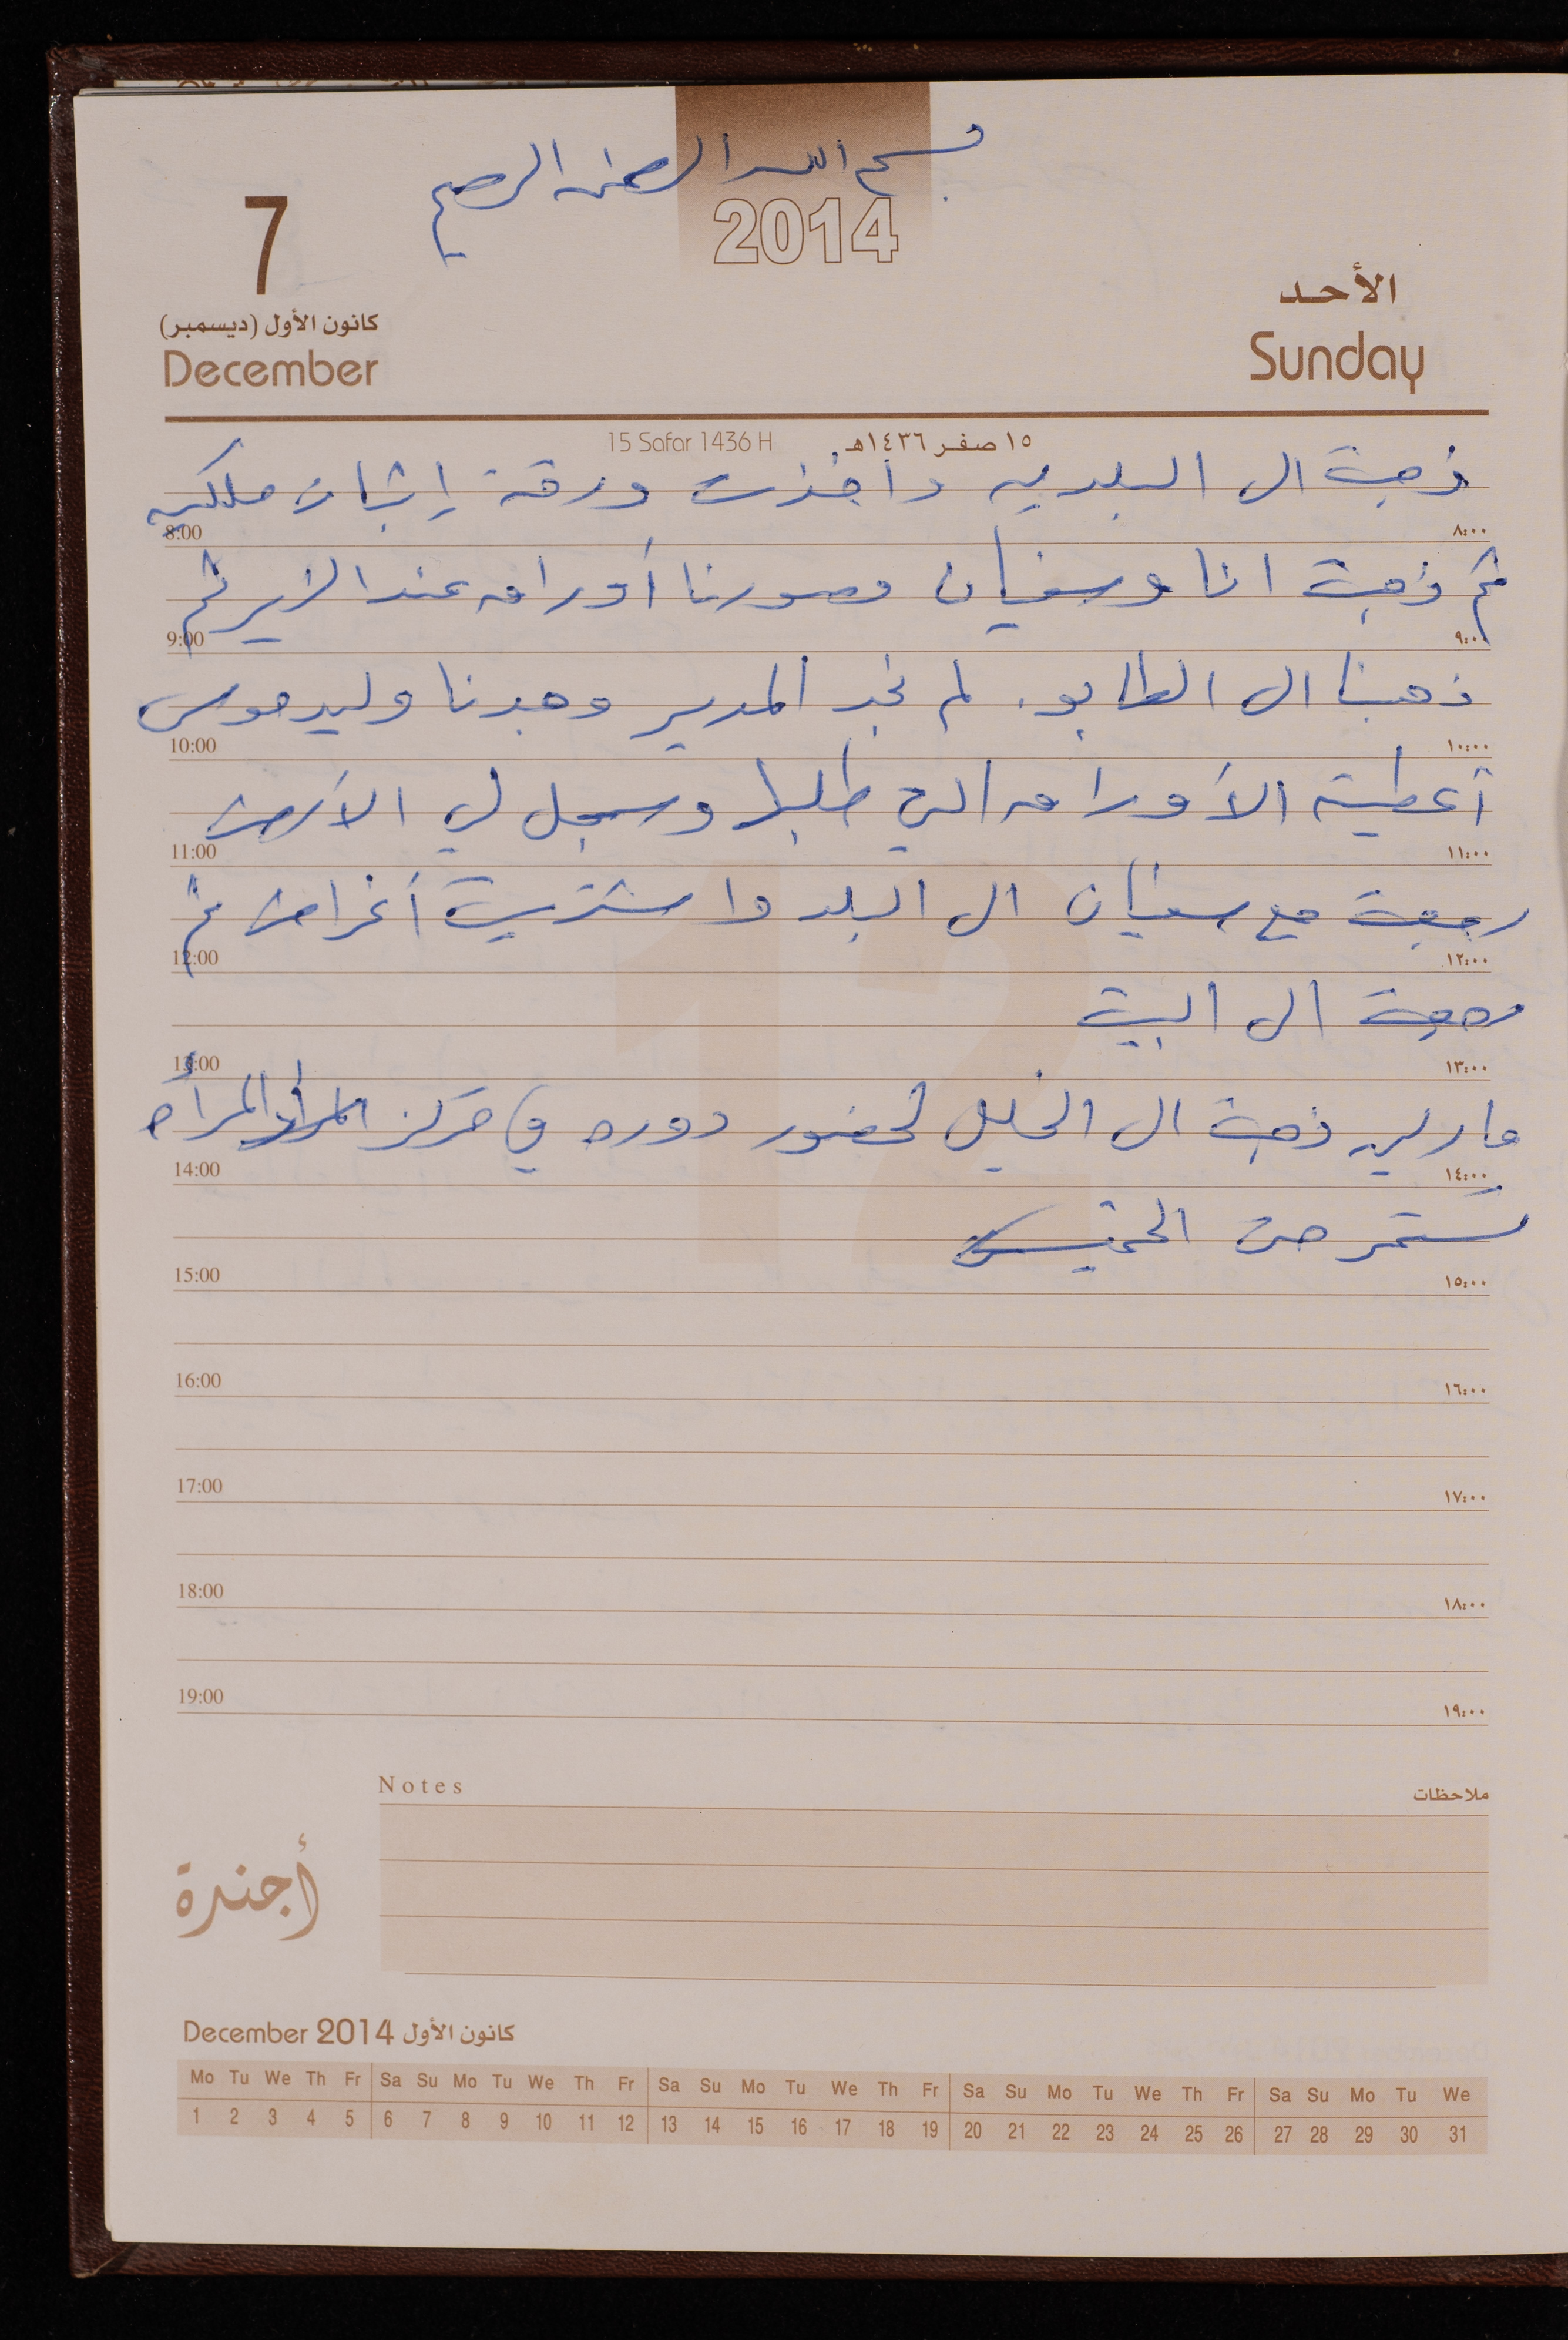 بسم الله الرحمن الرحيم
2014
7
كانون الأول (ديسمبر)
December
الأحد
Sunday
15 Safar 1436 H ١٥ صفر ١٤٣٦هـ
ذهبت الى البلديه واخذت ورقة إثبات ملكيه
8:00 ٨:٠٠
ثم ذهبت انا وسفيان وصورنا أوراق عند الزير ثم
9:00 ٩:٠٠
ذهبنا الى الطابو. لم نجد المدير وجدنا وليد موسى
10:00 ١٠:٠٠
أعطيته الأوراق التي طلبها وسجل لي الأرض
11:00 ١١:٠٠
رجعت مع سفيان الى البلد واشتريت أغراض ثم
12:00 ١٢:٠٠
رجعت الى البيت
13:00 ١٣:٠٠
ذهبت الى الخليل لحضور دوره في مركز المرأه
14:00 ١٤:٠٠
تستمر حتى الخميس
15:00 ١٥:٠٠
16:00 ١٦:٠٠
17:00 ١٧:٠٠
18:00 ١٨:٠٠
19:00 ١٩:٠٠
Notes ملاحظات
أجندة
December 2014 كانون الأول
Mo Tu We Th Fr Sa Su Mo Tu We Th Fr Sa Su Mo Tu We Th Fr Sa Su Mo Tu We Th Fr Sa Su Mo Tu We
1 2 3 4 5 6 7 8 9 10 11 12 13 14 15 16 17 18 19 20 21 22 23 24 25 26 27 28 29 30 31
12